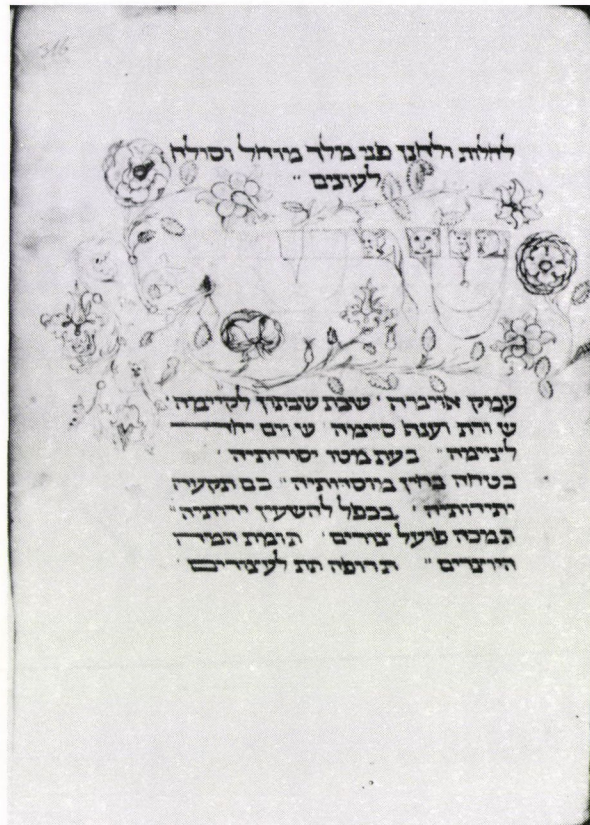 316
לחלות ולחנן פני מלך מוחל וסולח
לעונים "
עמק אויביה ' שבת שבתון לקיימה '
ש ורת וענה סיימה ' ש וים
ליניימה " בעת מטוי יסודותיה '
בטחה בחין מוסדותיה " בם תקעיה
יתידותיה ' בכפל להשעין ידותיה "
תמכה פועל צורים ' תומת המיה
היוצרים " תרופה תת לעצורים '